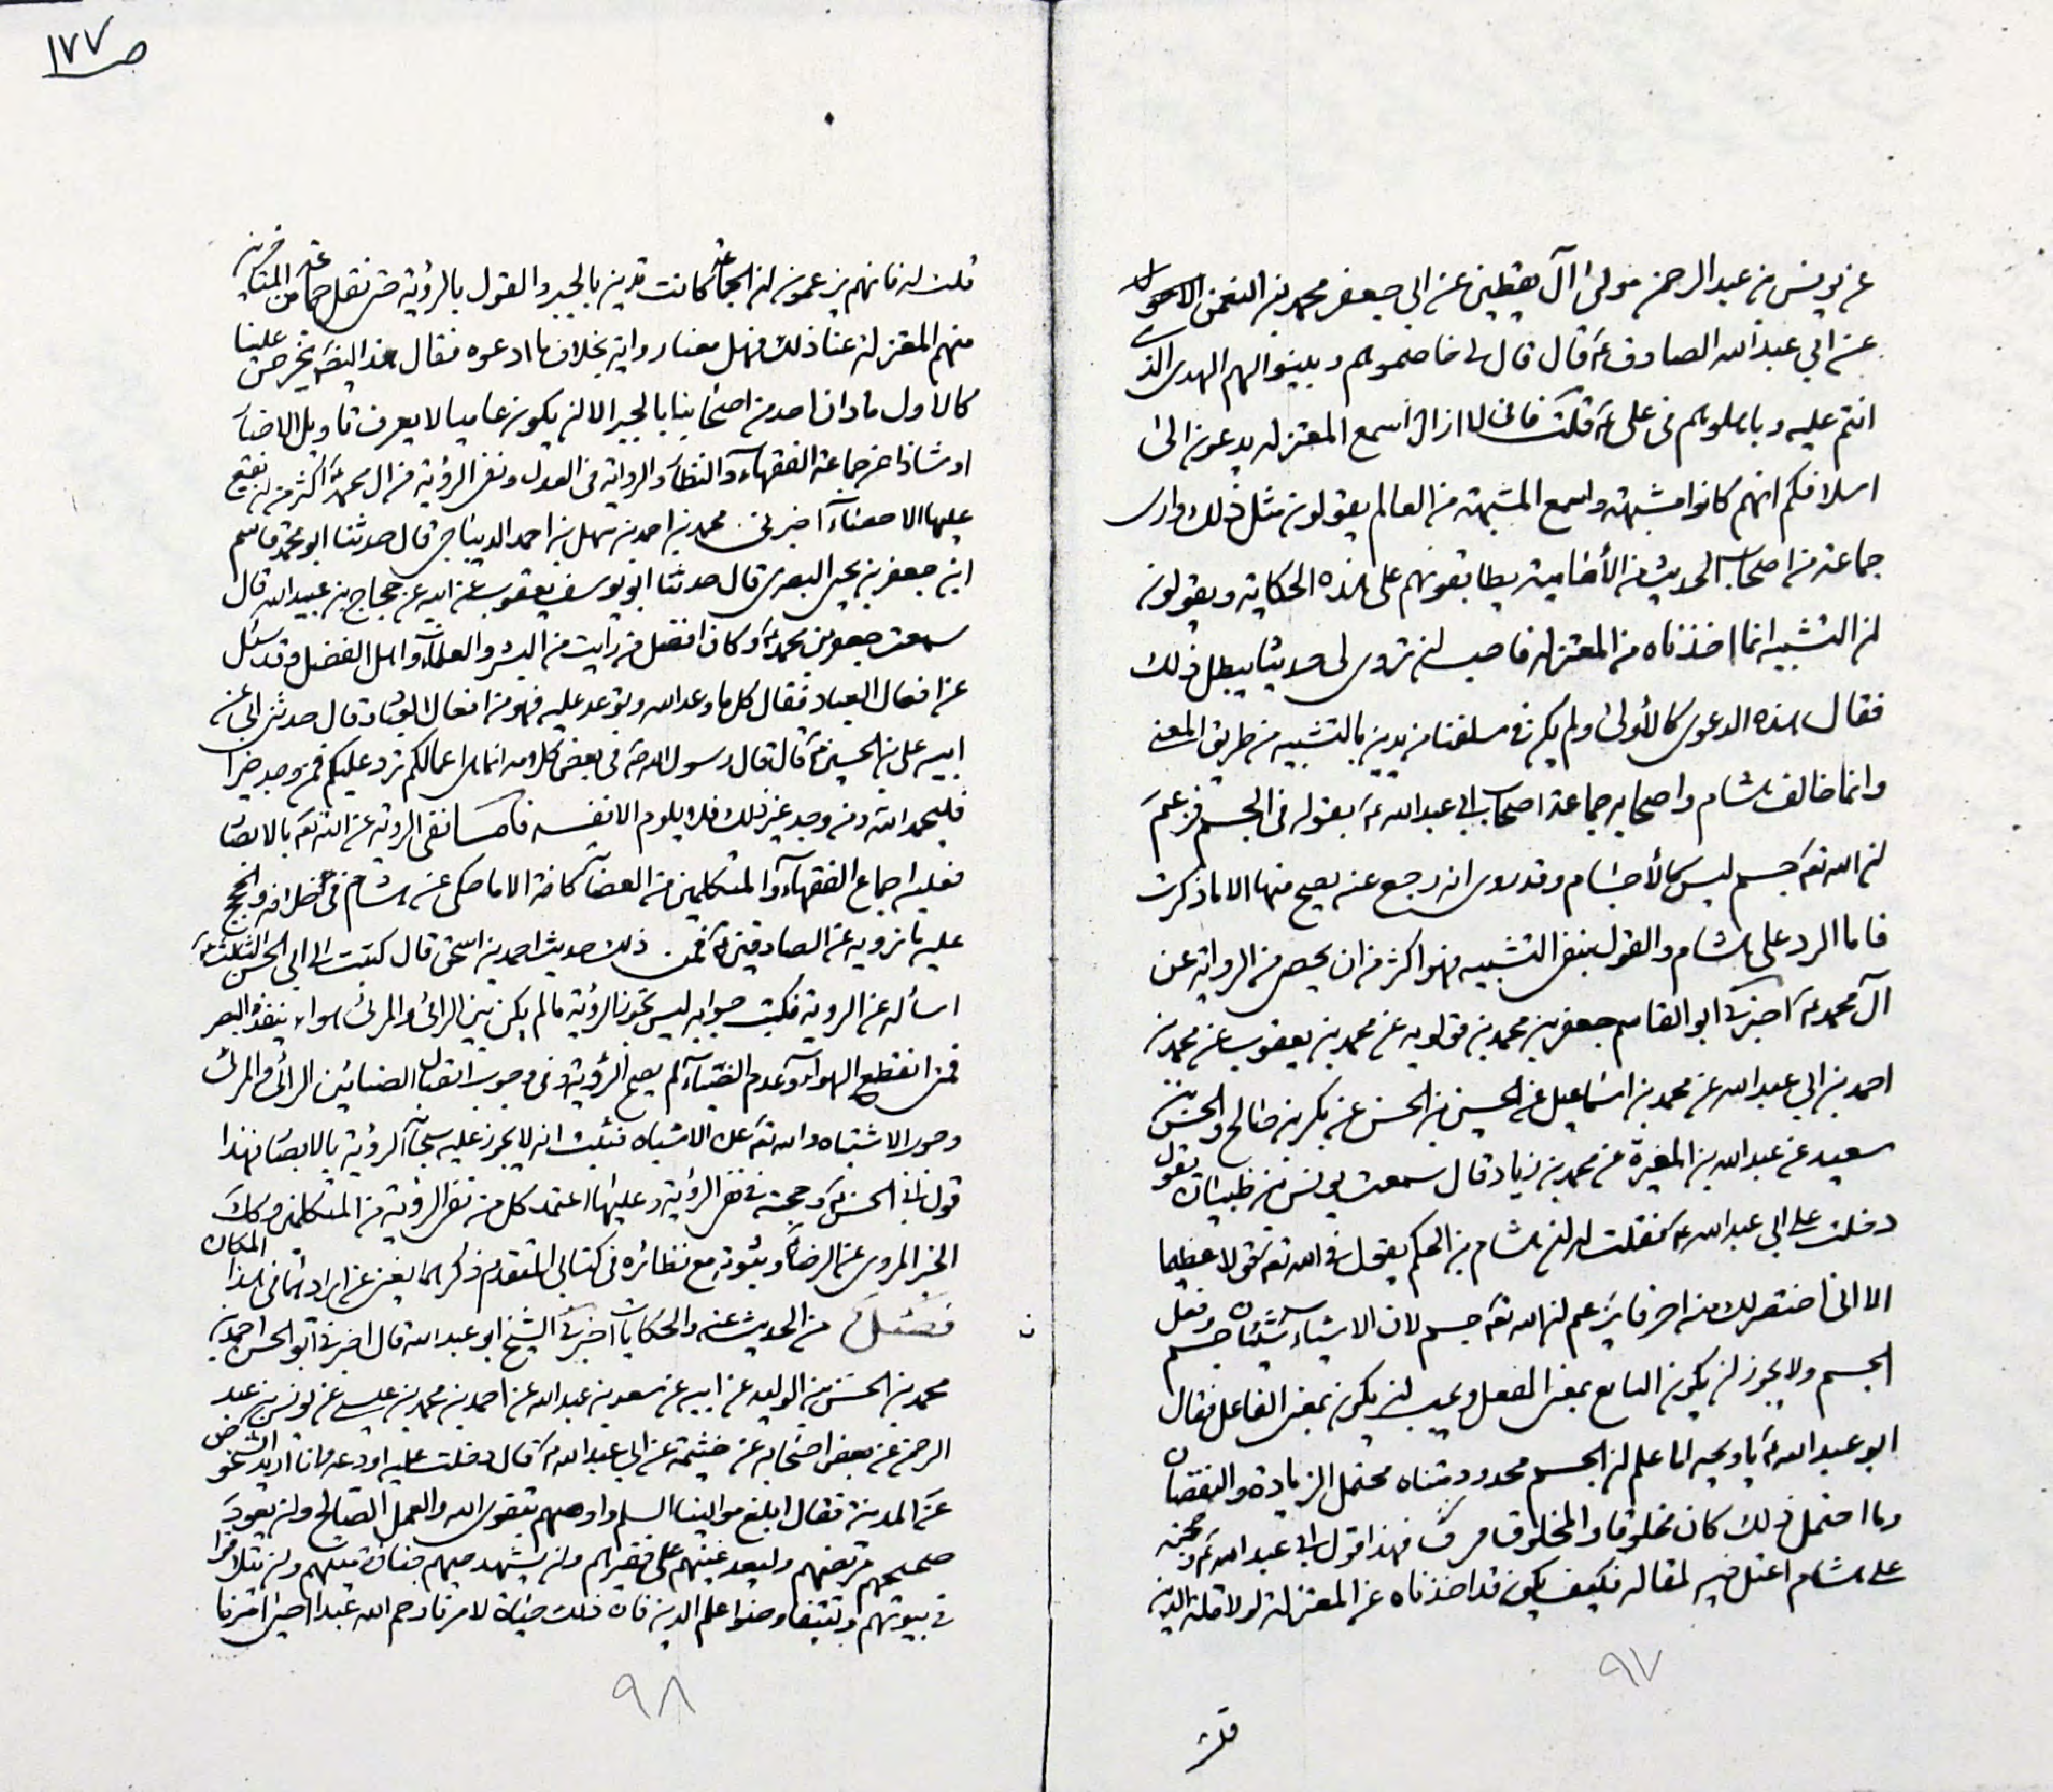 عن يونس بن عبد الرحمن مولى آل يقطين عن ابي جعفر محمد بن النعمن الاحول
عن ابي عبد الله الصادق ع قال قال لي خاصموهم وبينوا لهم الهدى الذي
انتم عليه وباهلوهم في علي ع قلت فاني لا ازال اسمع المعتزله يدعون الى
اسلافكم انهم كانوا مشبهة واسمع المشبهة من العالم يقولون مثل ذلك وارى
جماعة من اصحاب الحديث من الأمامية يطابقونهم على هذه الحكاية ويقولون
ان التشبيه انما اخذناه من المعتزله فاحب ان تروي لي حديثا يبطل ذلك
فقال هذه الدعوى كالأولى ولم يكن في سلفنا من يدين بالتشبيه من طريق المعنى
وانما خالف هشام واصحابه جماعة اصحاب ابي عبد الله ع بقوله في الجسم فزعم
ان الله تع جسم ليس كالأجسام وقد روى انه رجع عنه يصح منها الا ما ذكرت
فاما الرد على هشام والقول بنفي التشبيه فهو اكثر من ان يحصى من الرواية عن
آل محمد ع اخبرني ابو القاسم جعفر بن محمد بن قولويه عن محمد بن يعقوب عن محمد بن
احمد بن ابي عبد الله عن محمد بن اسماعيل عن الحسين بن الحسن عن بكر بن صالح والحسن بن
سعيد عن عبد الله بن المغيرة عن محمد بن زياد قال سمعت يونس بن ظبيان يقول
دخلت على ابي عبد الله ع فقلت له ان هشام بن الحكم يقول في الله تع قولا عظيما
الا اني اختصر لك منه احرفا يزعم ان الله تع جسم لان الاشياء شيئان جسم وفعل
الجسم ولا يجوز ان يكون الصانع بمعنى الفعل ويجب ان يكون بمعنى الفاعل فقال
ابو عبد الله ع يا ويحه اما علم ان الجسم محدود متناه محتمل الزيادة والنقصان
وما احتمل ذلك كان مخلوقا والمخلوق فهذا قول ابي عبد الله ع وحجته
على هشام اعتل فيه لمقاله فكيف يكون قد اخذناه عن المعتزلة لولا قلة الدين
٩٧
قلت
ص١٧٧
قلت له فانهم يزعمون ان الجماعة كانت تدين بالجبر والقول بالرؤية حتى نقل جماعة من المتاخرين
منهم المعتزلة عنا ذلك فهل معنا رواية بخلاف ما ادعوه فقال هذا ايضا تخرص علينا
كالاول ما دان احد من اصحابنا بالجبر الا ان يكون عاميا لا يعرف تاويل الاخبار
او شاذا عن جماعة الفقهاء والنظار والرواية في العدل ونفي الرؤية من ال محمد ع اكثر من ان يقع
عليها الاحصاء اخبرني محمد بن احمد بن سهل بن احمد الديباجي قال حدثنا ابو محمد قاسم
ابن جعفر بن يحيى البصرى قال حدثنا ابو يوسف يعقوب عن ابيه عن حجاج بن عبيد الله قال
سمعت جعفر بن محمد ع وكان افضل من رايت من البشر والعلماء واهل الفضل وقد سئل
عن افعال العباد فقال كل ما وعد الله وتوعد عليه فهو من افعال العباد قال حدثني ابي عن
ابيه علي بن الحسين ع قال قال رسول الله ص في بعض كلامه انما هي اعمالكم ترد عليكم فمن وجد خيرا
فليحمد الله ومن وجد غير ذلك فلا يلوم الا نفسه فاما نفي الروية عن الله تع بالابصار
فعليه اجماع الفقهاء والمتكلمين من العصابة كافة الا ما حكى عن هشام في خلافه والحجج
عليه ما نرويه عن الصادقين ع فمن ذلك حديث احمد بن اسحق قال كتبت الى ابي الحسن الثالث ع
اسأله عن الروية فكتب جوابه ليس تجوز الرؤية ما لم يكن بين الرائى والمرئى هواء ينفذه البصر
فمتى انقطع الهواء وعدم الضياء لم يصح الرؤية وفي وجوب اتصال الضيا بين الرائى والمرئى
وجوب الاشتباه والله تع عن الاشباه فثبت انه لا يجوز عليه سبحانه الرؤية بالابصار فهذا
قول ابي الحسن ع وحجته في نفي الرؤية وعليها اعتمد كل من نفى الرؤية من المتكلمين وكذلك
الخبر المروى عن الرضا ع وثبوته مع نظائره في كتابي المتقدم ذكرهما يغني عن ايرادها في هذا المكان
فصل من الحديث عنه والحكايات اخبرني الشيخ ابو عبد الله قال اخبرني ابو الحسن احمد بن
محمد بن الحسن بن الوليد عن ابيه عن سعد بن عبد الله عن احمد بن محمد بن عيسى عن يونس بن عبد
الرحمن عن بعض اصحابه عن خيثمة عن ابي عبد الله ع قال دخلت عليه اودعه وانا اريد الشخوص
عن المدينة فقال ابلغ موالينا السلم واوصهم بتقوى الله والعمل الصالح وان يعود
صحيحهم مريضهم وليعد غنيهم على فقيرهم وان يشهد حيهم جنازة ميتهم وان يتلاقوا
في بيوتهم وتتفاوضوا علم الدين فان ذلك حياة لامرنا رحم الله عبدا احيى امرنا
٩٨